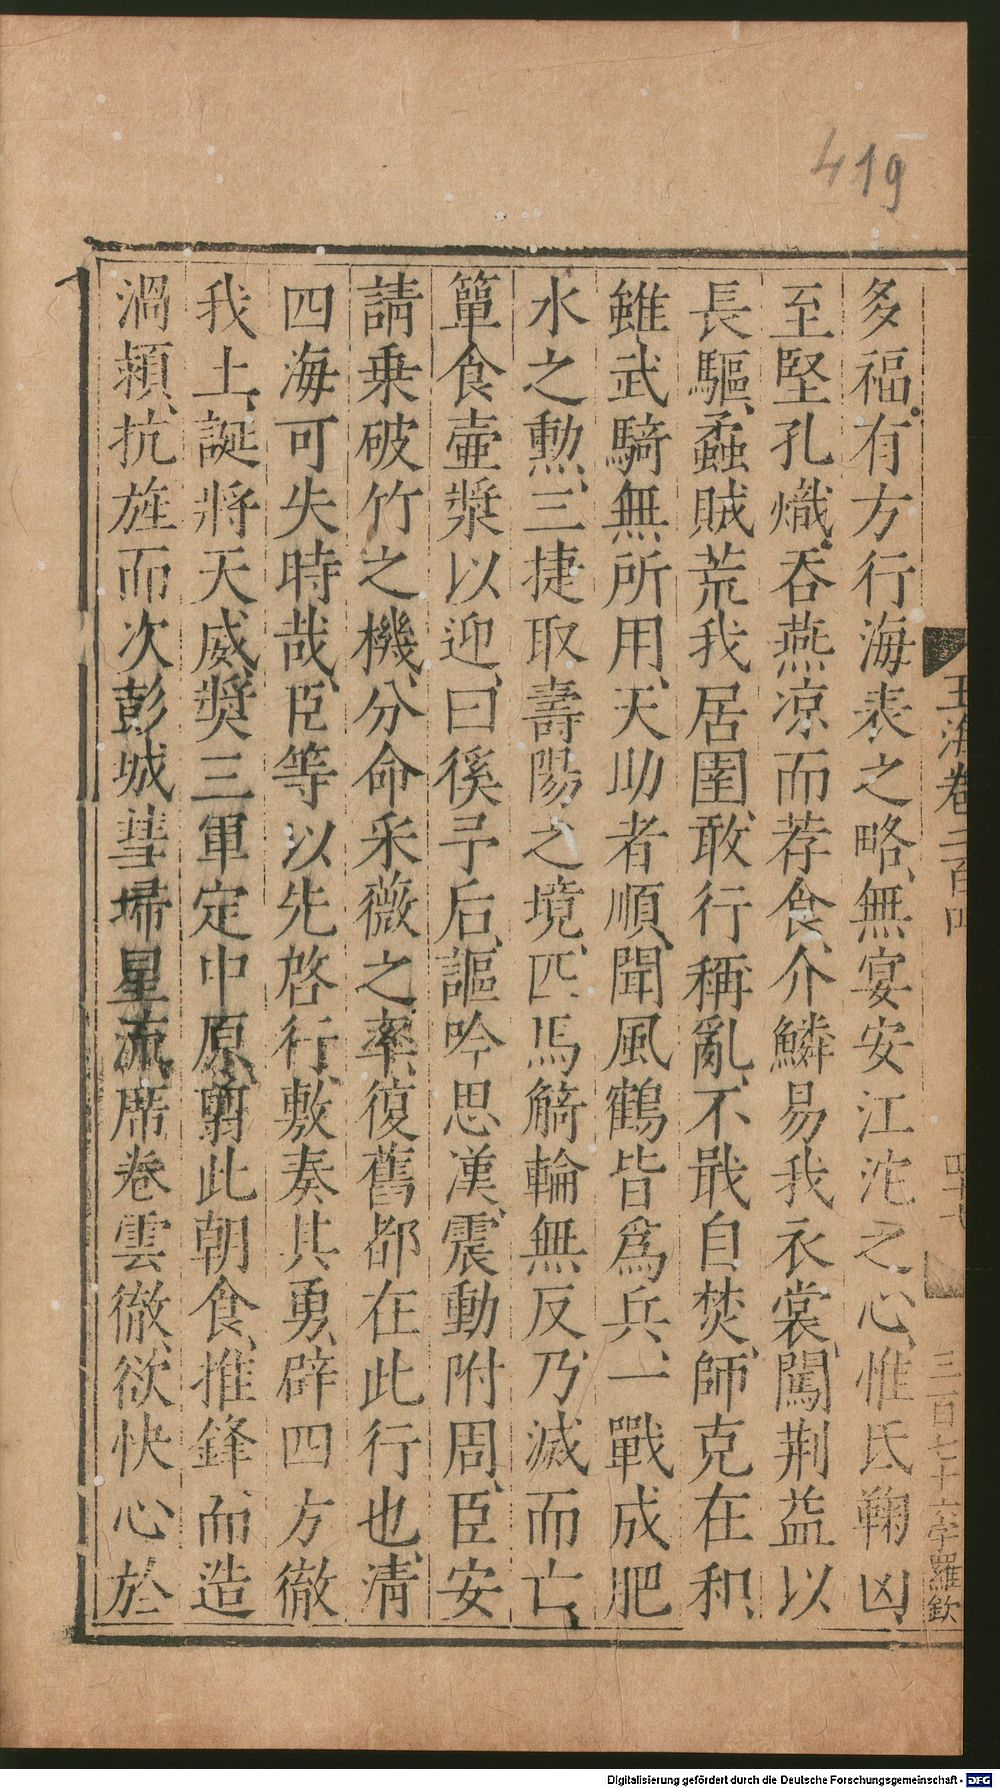 419
玉海卷二百四
四十七
三百七十六字羅欽
多福。有方行海表之略、無宴安江沱之心、惟氐鞠凶、
至堅孔熾、吞燕凉而荐食、介鱗易我衣裳、闖荆益以
長驅、蟊賊荒我居圉、敢行稱亂、不戢自焚、師克在和、
雖武騎無所用、天助者順、聞風鶴皆爲兵、一戰成肥
水之勲、三捷取壽陽之境、匹馬觭輪無反、乃滅而亡、
簞食壷漿以迎、曰徯予后、謳吟思漢、震動附周、臣安
請乗破竹之機、分命采薇之率、復舊都在此行也、清
四海可失時哉、臣等以先啓行、敷奏其勇、辟四方徹
我土、誕將天威、奬三軍定中原、翦此朝食、推鋒而造
渦潁、抗旌而次彭城、彗掃星流、席卷雲徹、欲快心於
Digitalisierung gefördert durch die Deutsche Forschungsgemeinschaft - DFG